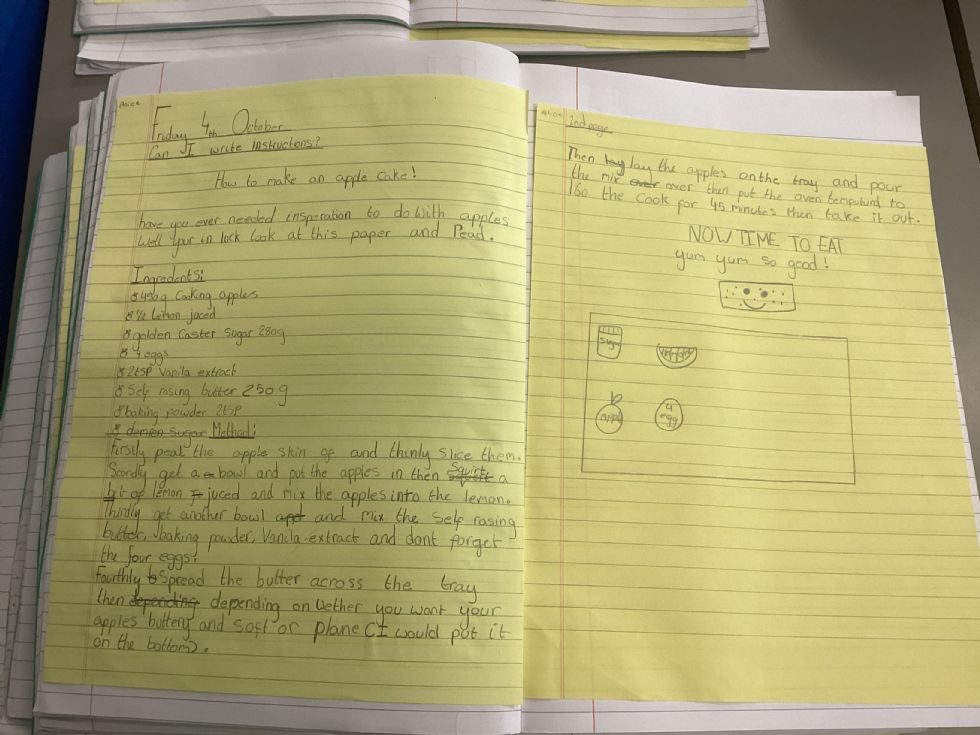 Alice
Friday 4th October
Can I write instructions?
How to make an apple cake!
have you ever needed insperation to do with apples
Well your in lock look at this paper and Read.
Ingredents:
450g Cooking apples
½ Lemon juced
golden Caster Sugar 280g
4 eggs
2tSP Vanila extract
Self rasing butter 250g
baking powder 2tSP
demien Sugar Method:
Firstly peal the apple skin of and thinly slice them.
Scordly get a bowl and put the apples in then Squirt a
bit of lemon juced and mix the apples into the lemon.
Thirdly get another bowl and and mix the Self rasing
butter, baking powder, Vanila extract and dont forget
the four eggs.
Fourthly Spread the butter across the tray
then depending depending on Wether you want your
apples buttery and Soft or plane (I would put it
on the bottom).
Alice
2nd page
Then lay the apples on the tray and pour
the mix over over then put the oven temputurd to
160 the Cook for 45 minutes then take it out.
NOW TIME TO EAT
yum yum so good!
Sugar
apple
4
egg